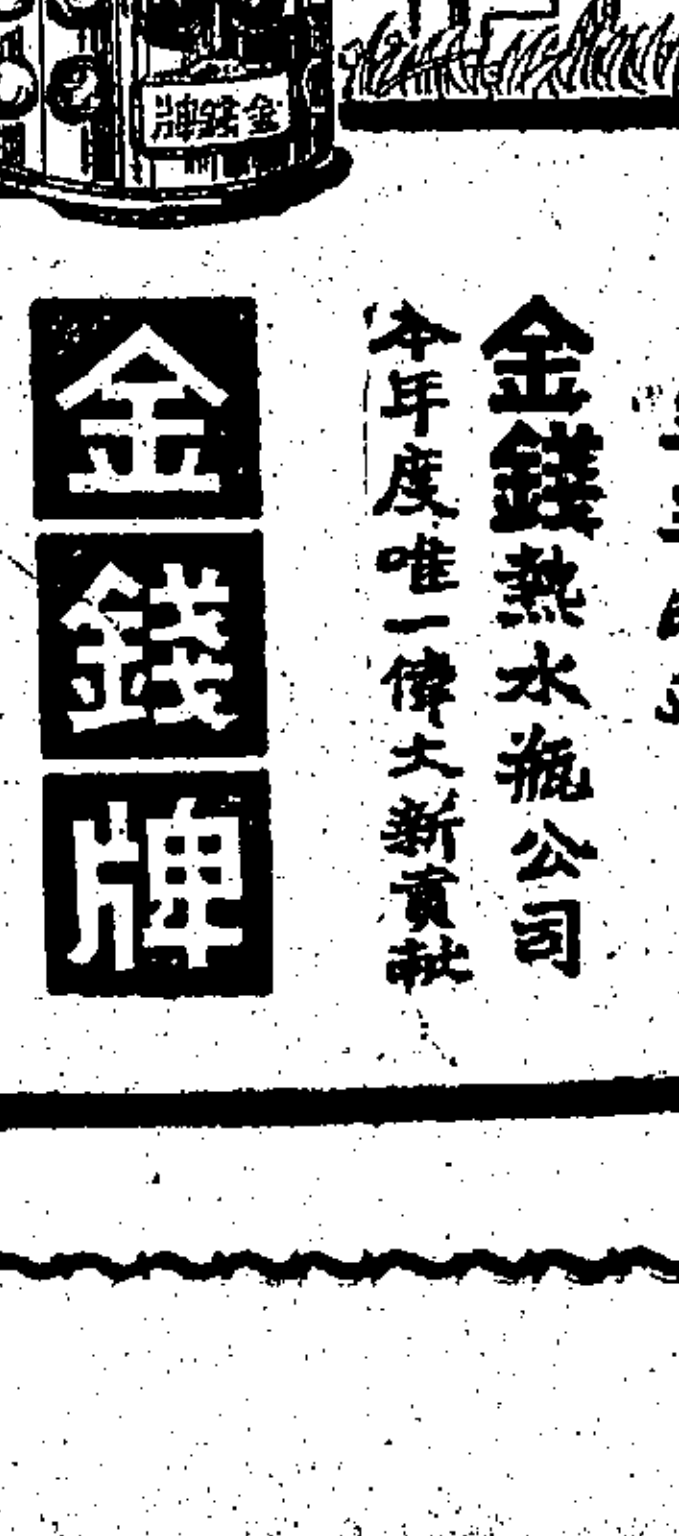 金錢牌
金錢熱水瓶公司
本年度唯一偉大新貢献
金錢牌